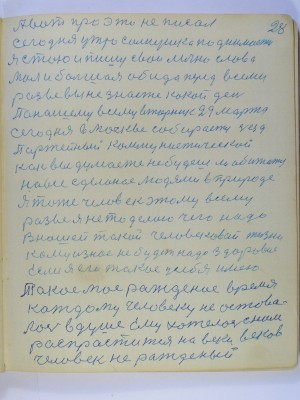 28
А вот про это не писал
сегодня утро солнушко поднимаеть
я стою и пишу свои лично слова
мои большая обида пред всеми
разве вы не знаете какой ден
По нашему всему вторник 29 марта
сегодня в Москве собираеть езд
Партейный коммунистический
как вы думаете не будеш
на все сделаное людями в природе
я тоже человек этому всему
разве я не то делаю чего надо
В нашей такой человековой жизни
кому из нас не будет надо здоровье
если я его такое у себя имею
Такое мое раждение время
каждому человеку не остова-
лос в душе ему хотелос с ним
распраститса на веки веков
человек не рожденый